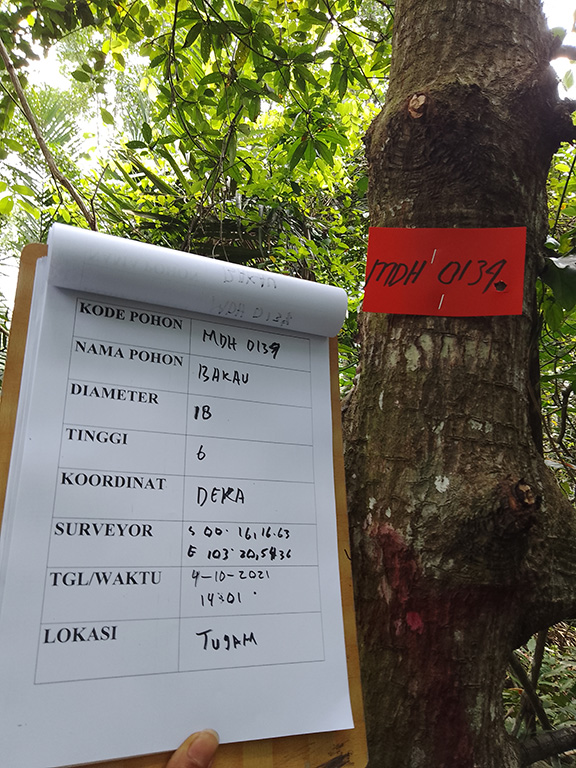 KODE POHON MDH 0139
NAMA POHON BAKAU
DIAMETER 18
TINGGI 6
KOORDINAT DEKA
SURVEYOR S 00. 16,16.63
E 103. 20,54.36
TGL/WAKTU 4-10-2021
14:01
LOKASI TUJAM
MDH 0139